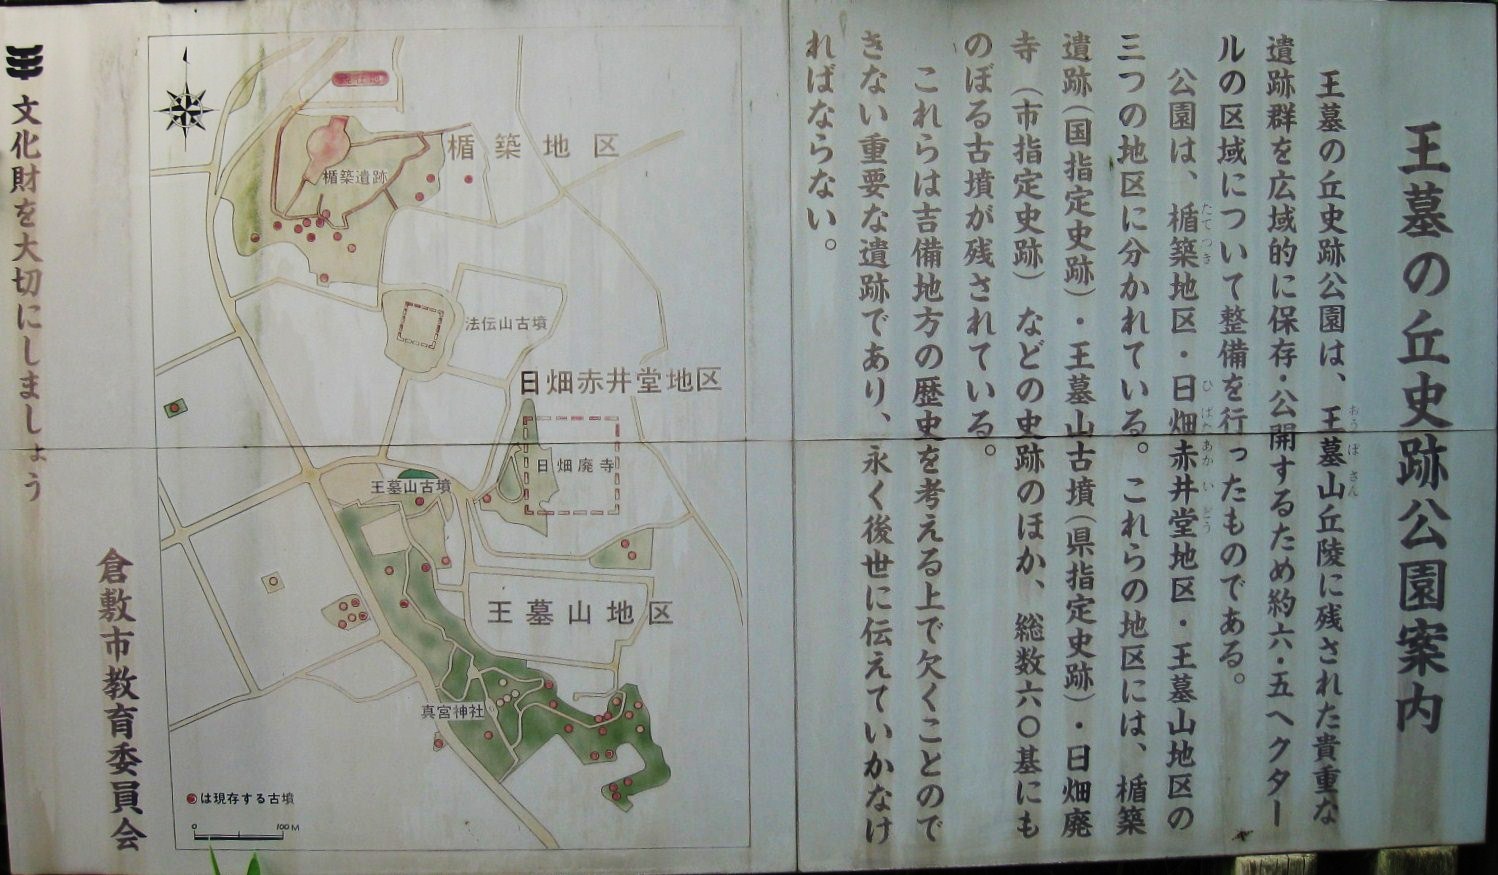 王墓の丘史跡公園案内
王墓の丘史跡公園は、王墓山丘陵に残された貴重な
おうぼさん
遺跡群を広域的に保存・公開するため約六・五ヘクター
ルの区域について整備を行ったものである。
公園は、楯築地区・日畑赤井堂地区・王墓山地区の
たてつき
ひばたあかいどう
三つの地区に分かれている。これらの地区には、楯築
遺跡(国指定史跡)・王墓山古墳(県指定史跡)・日畑廃
寺(市指定史跡)などの史跡のほか、総数六〇基にも
のぼる古墳が残されている。
これらは吉備地方の歴史を考える上で欠くことので
きない重要な遺跡であり、永く後世に伝えていかなけ
ればならない。
楯築地区
楯築遺跡
法伝山古墳
日畑赤井堂地区
日畑廃寺
王墓山古墳
王墓山地区
真宮神社
は現存する古墳
0 100M
倉敷市教育委員会
文化財を大切にしましょう